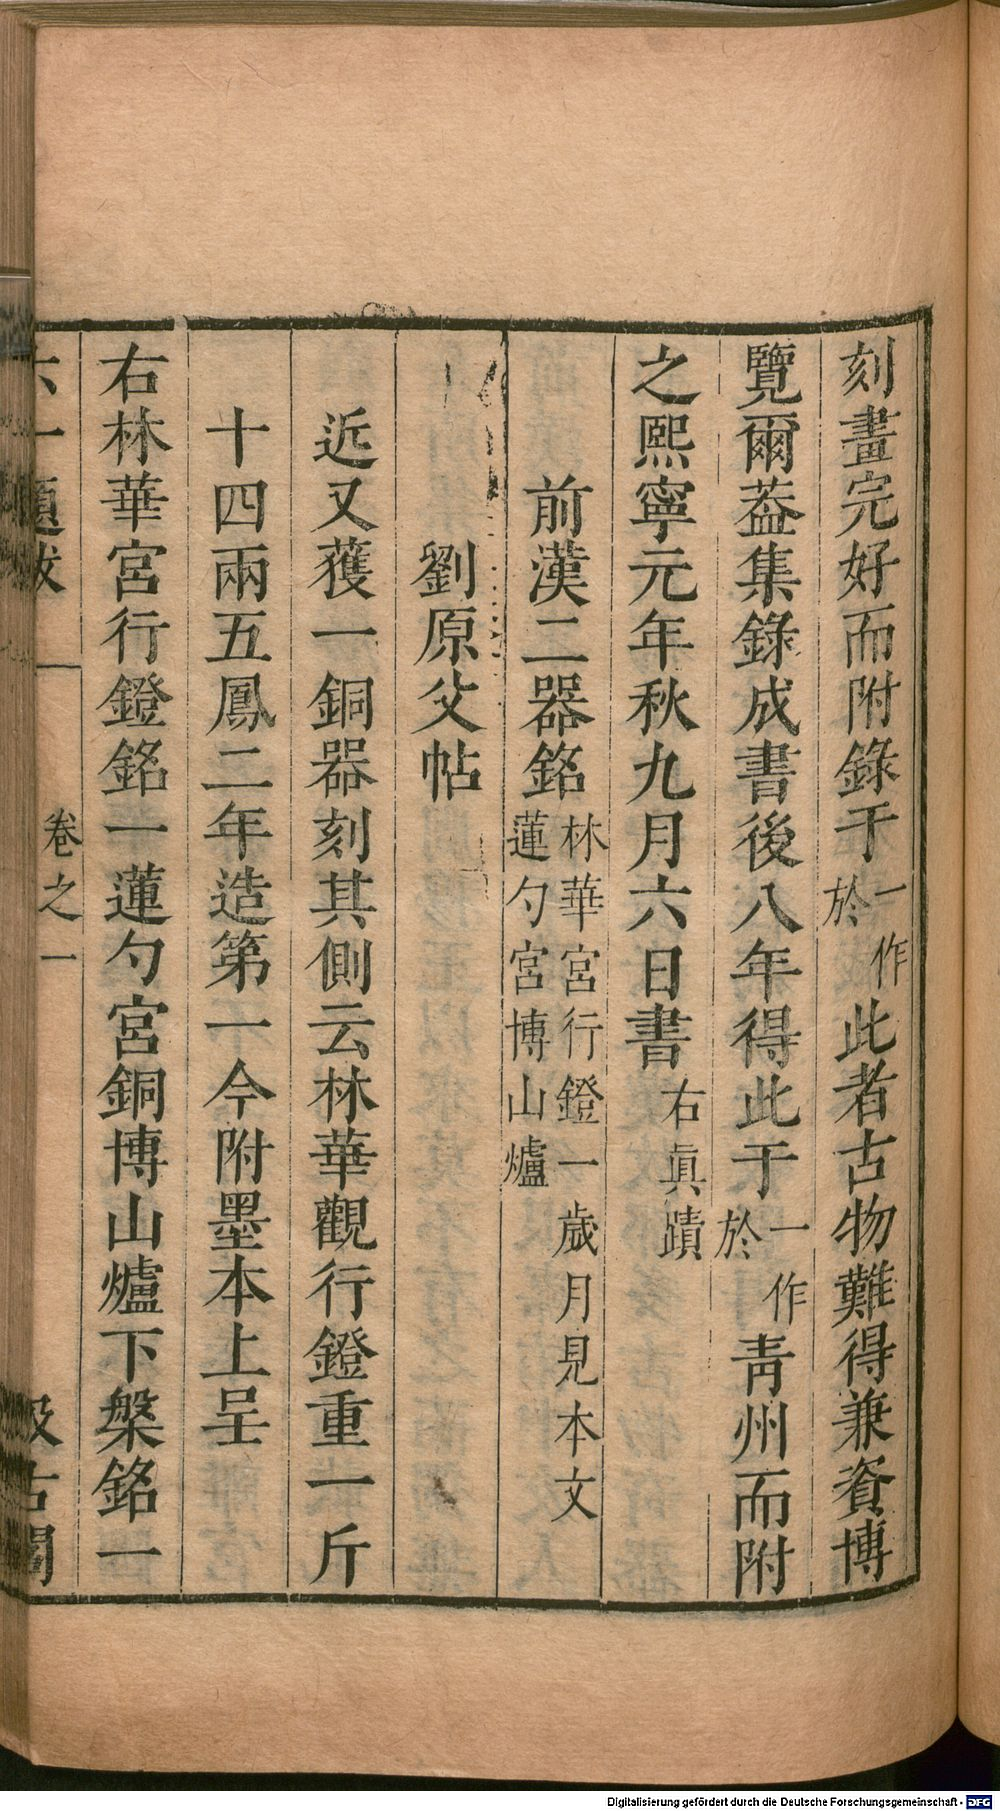 刻畫完好而附錄于一作於此者古物難得兼資博
覽爾葢集錄成書後八年得此于一作於青州而附
之熙寧元年秋九月六日書右眞蹟
前漢二器銘林華宮行鐙一歲月見本文蓮勺宮博山爐
劉原父帖
近又獲一銅器刻其側云林華觀行鐙重一斤
十四兩五鳳二年造第一今附墨本上呈
右林華宮行鐙銘一蓮勺宮銅博山爐下槃銘一
六一題跋 卷之一 汲古閣
Digitalisierung gefördert durch die Deutsche Forschungsgemeinschaft - DFG